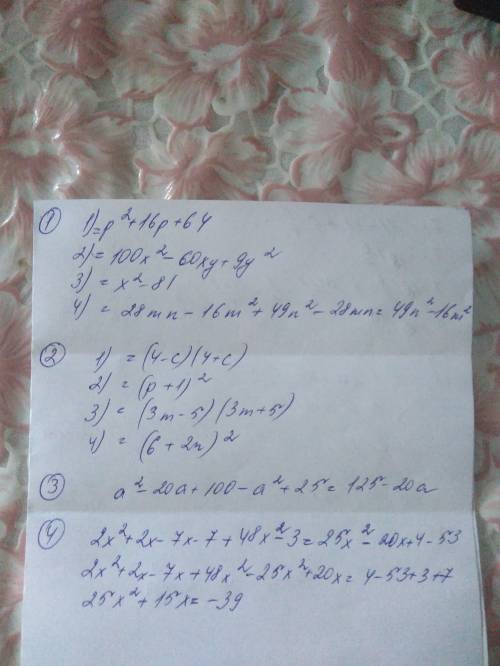 ① 1) = p²+16p+64
2) = 100x²-60xy+9y²
3) = x²-81
4) = 28mn-16m²+49n²-28mn=49n²-16m²
② 1) = (4-c)(4+c)
2) = (p+1)²
3) = (3m-5)(3m+5)
4) = (6+2n)²
③ a²-20a+100-a²+25=125-20a
④ 2x²+2x-7x-7+48x²-3=25x²-20x+4-53
2x²+2x-7x+48x²-25x²+20x=4-53+3+7
25x²+15x=-39